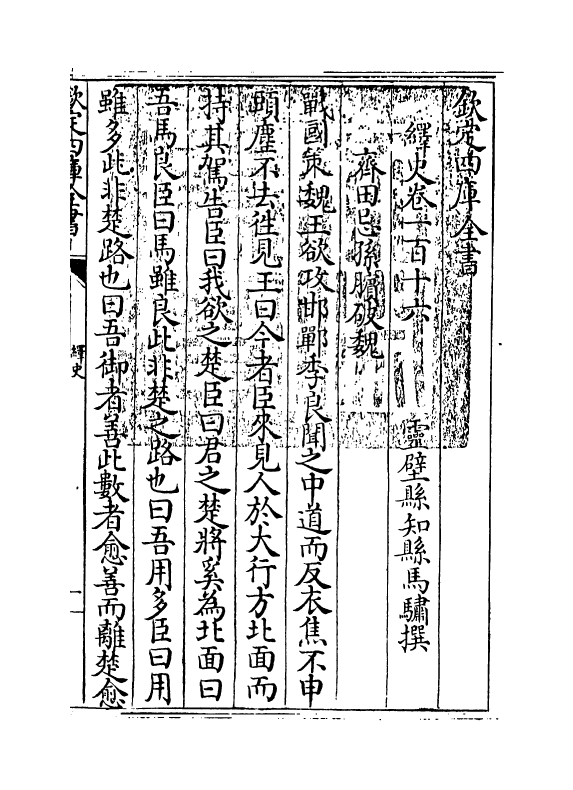 欽定四庫全書
繹史卷一百十六
靈壁縣知縣馬驌撰
齊田忌孫臏破魏
戰國策魏王欲攻邯鄲季良聞之中道而反衣焦不申
頭塵不去徃見王曰今者臣來見人於大行方北面而
持其駕告臣曰我欲之楚臣曰君之楚將奚為北面曰
吾馬良臣曰馬雖良此非楚之路也曰吾用多臣曰用
雖多此非楚路也曰吾御者善此數者愈善而離楚愈
欽定四庫全書
繹史